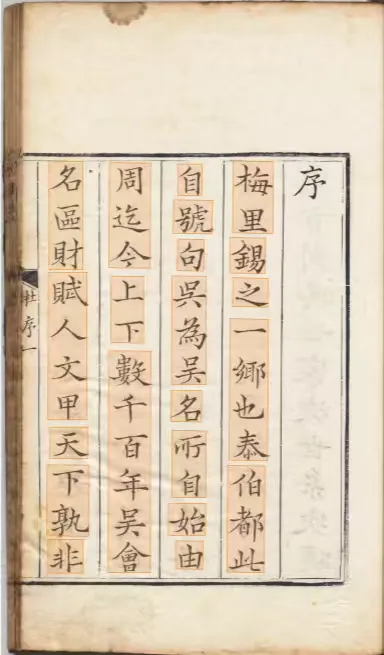 序
梅里錫之一鄉也泰伯都此
自號句吳為吳名所自始由
周迄今上下數千百年吳會
名區財賦人文甲天下孰非
序一